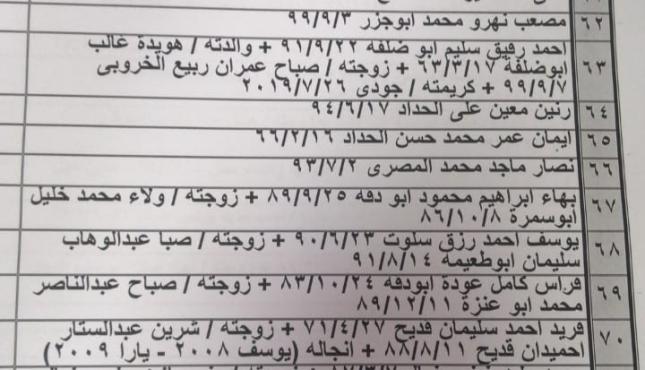 ٦٢ مصعب نهرو محمد ابوجزر ٩٩/٩/٣
احمد رفيق سليم ابو ضلفه ٩١/٩/٢٢ + والدته / هويدة غالب
٦٣ ابوضلفة ٦٣/٣/١٧ + زوجته / صباح عمران ربيع الخروبى
٩٩/٩/٧ + كريمته / جودى ٢٠١٩/٧/٢٦
٦٤ رنين معين على الحداد ٩٤/٦/١٧
٦٥ ايمان عمر محمد حسن الحداد ٦٦/٢/١٦
٦٦ نصار ماجد محمد المصرى ٩٣/٧/٢
٦٧ بهاء ابراهيم محمود ابو دفه ٨٩/٩/٢٥ + زوجته / ولاء محمد خليل
ابوسمرة ٨٦/١٠/٨
٦٨ يوسف احمد رزق سلوت ٩٠/٦/٢٣ + زوجته / صبا عبدالوهاب
سليمان ابوطعيمة ٩١/٨/١٤
٦٩ فراس كامل عودة ابودفه ٨٣/١٠/٢٤ + زوجته / صباح عبدالناصر
محمد ابو عنزة ٨٩/١٢/١١
٧٠ فريد احمد سليمان قديح ٧١/٤/٢٧ + زوجته / شرين عبدالستار
احميدان قديح ٨٨/٨/١١ + انجاله (يوسف ٢٠٠٨ - يارا ٢٠٠٩)